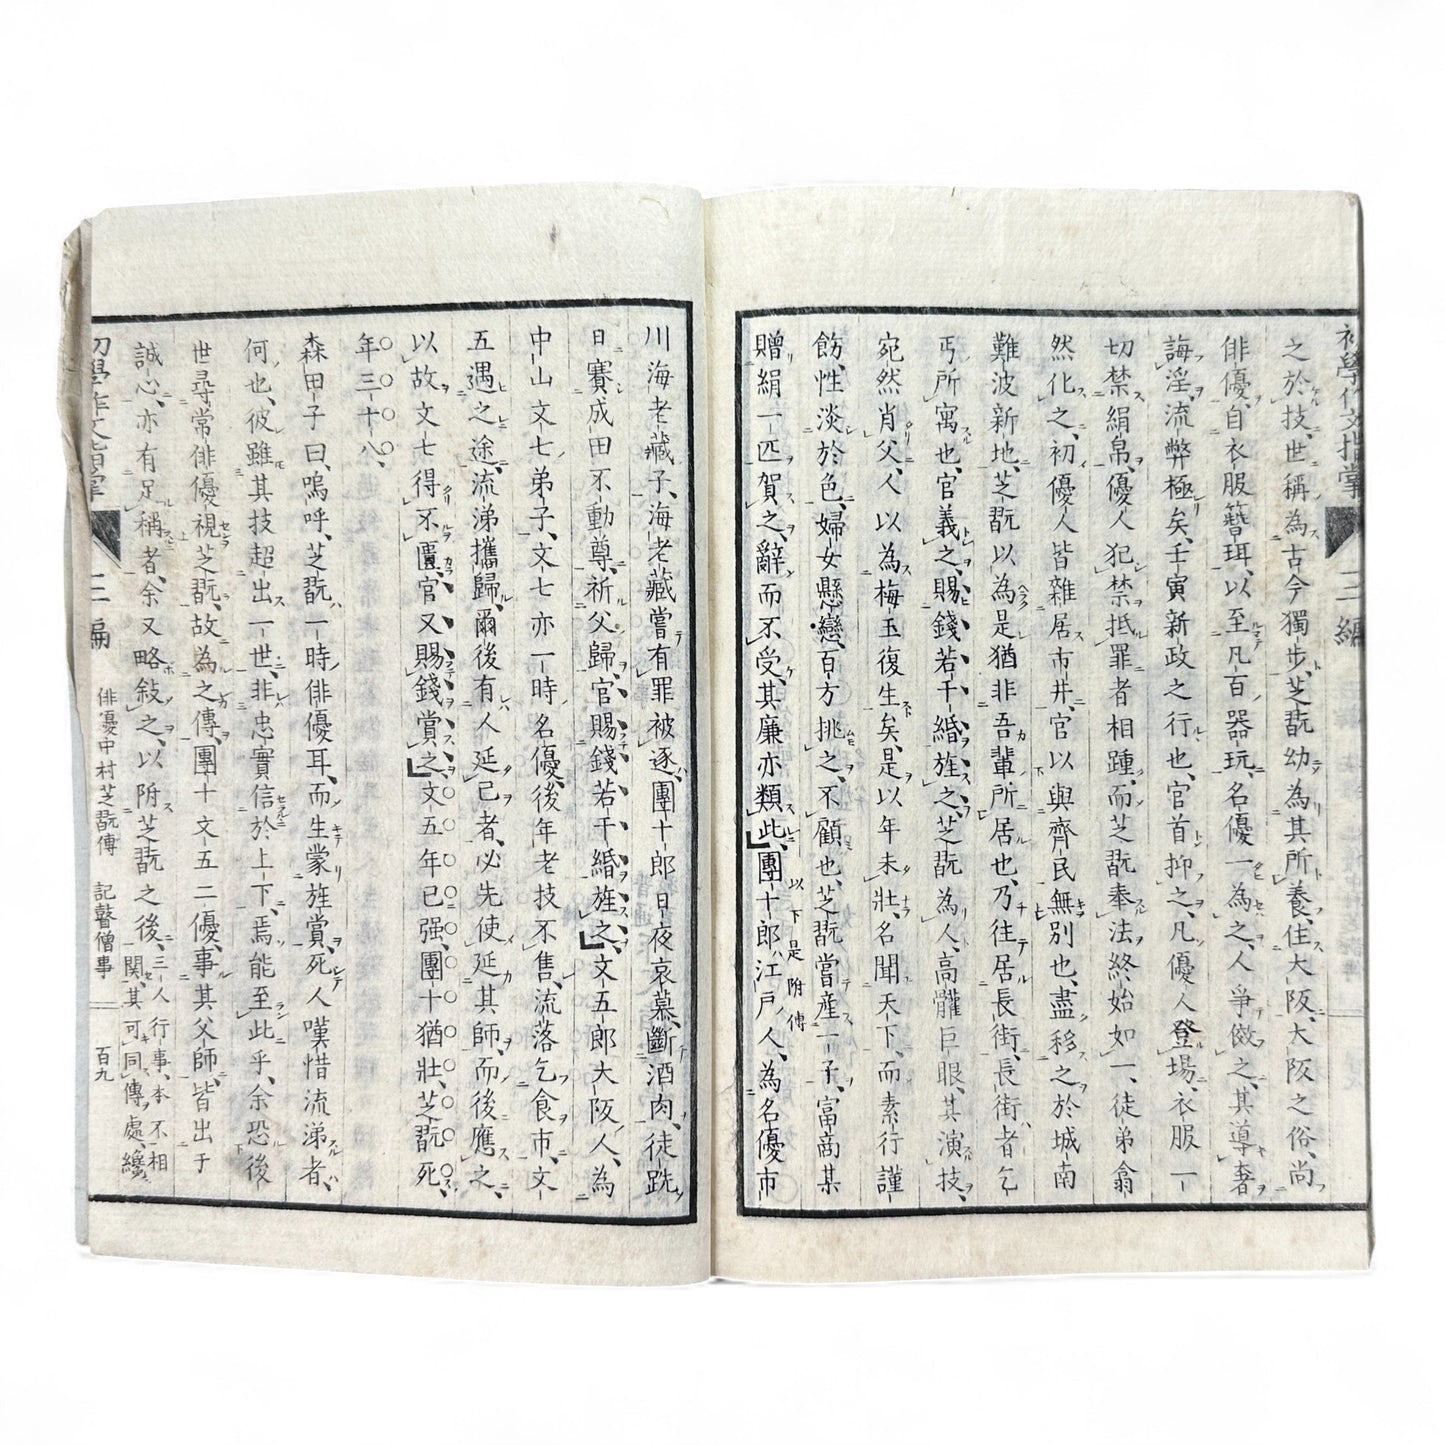 初學作文指掌 三編
之於技、世稱為古今獨步、芝翫幼為其所養、住大阪、大阪之俗、尚
俳優、自衣服簪珥、以至凡百器玩、名優一為之、人爭傚之、其導奢
誨淫、流弊極矣、壬寅新政之行也、官首抑之、凡優人登場、衣服一
切禁絹帛、優人犯禁抵罪者相踵、而芝翫奉法終始如一、徒弟翕
然化之、初優人皆雜居市井、官以與齊民無別也、盡移之於城南
難波新地、芝翫以為是猶非吾輩所居也、乃往居長街、長街者乞
丐所寓也、官義之、賜錢若干緡旌之、芝翫為人、高髗巨眼、其演技、
宛然肖父、人以為梅玉復生矣、是以年未壯、名聞天下、而素行謹
飭、性淡於色、婦女懸戀、百方挑之、不顧也、芝翫嘗產一子、富商某
贈絹一匹賀之、辭而不受、其廉亦類此、以下是附傳 團十郎、江戶人、為名優市
川海老藏子、海老藏嘗有罪被逐、團十郎日夜哀慕、斷酒肉、徒跣
日賽成田不動尊、祈父歸、官賜錢若干緡旌之、文五郎大阪人、為
中山文七弟子、文七亦一時名優、後年老技不售、流落乞食市、文
五遇之途、流涕攜歸、爾後有人延己者、必先使延其師、而後應之、
以故文七得不匱、官又賜錢賞之、文五年已强、團十猶壯、芝翫死、
年三十八、
森田子曰、嗚呼、芝翫一時俳優耳、而生蒙旌賞、死人嘆惜流涕者、
何也、彼雖其技超出一世、非忠實信於上下、焉能至此乎、余恐後
世尋常俳優視芝翫、故為之傳、團十文五二優、事其父師、皆出于
誠心、亦有足稱者、余又略敍之、以附芝翫之後、三人行事、本不相
關、其可同傳處、纔
初學作文指掌 三編 俳優中村芝翫傳 記瞽僧事 百九